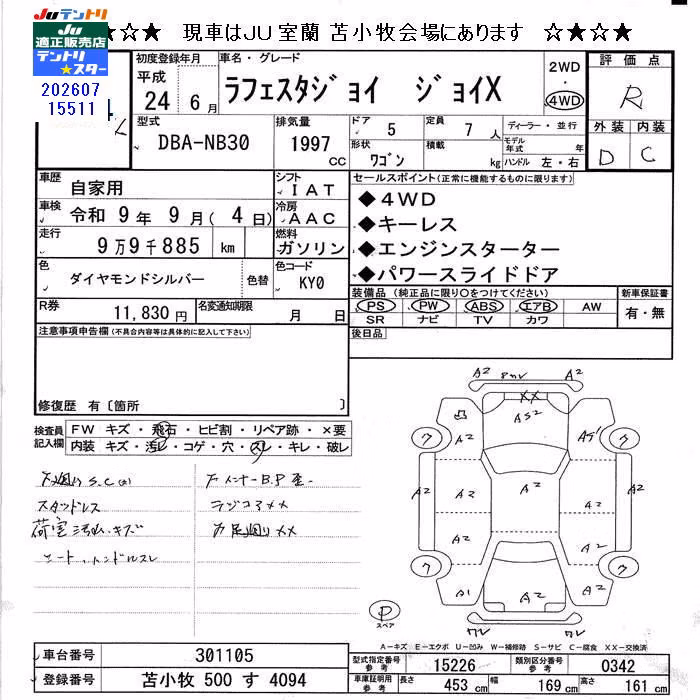 Juテントリ
JU
適正販売店
テントリ
★スター
202607
15511
☆★☆ 現車はJU室蘭 苫小牧会場にあります ☆★☆
初度登録年月
平成
24 6 月
車名・グレード
ラフェスタジョイ ジョイX
2WD
・
4WD
評価点
R
型式
DBA-NB30
排気量
1997
CC
ドア
5
定員
7 人
形状
ワゴン
積載
kg
ディーラー・並行
モデル年式 年
ハンドル 左・右
外装 内装
D C
車歴
自家用
シフト
IAT
車検
令和 9 年 9 月( 4 日)
冷房
AAC
走行
9 万 9 千 885 km
燃料
ガソリン
色
ダイヤモンドシルバー
色替
色コード
KY0
R券
11,830 円
名変通知期限
月 日
セールスポイント(正常に機能するものに限ります)
◆4WD
◆キーレス
◆エンジンスターター
◆パワースライドドア
装備品(純正品に限り○をつけてください)
PS PW ABS エアB AW
SR ナビ TV カワ
新車保証書
有・無
後日品
注意事項申告欄(不具合内容等は具体的に記入して下さい)
修復歴 有〔箇所 〕
検査員
記入欄
FW キズ・飛石・ヒビ割・リペア跡・×要
内装 キズ・汚レ・コゲ・穴・スレ・キレ・破レ
下廻り S.C
スタッドレス
荷室 汚レ、キズ
シート、ハンドルスレ
ラジコアXX
A2
A2
XX
A2
A2
A2
A2
A2
A2
A2
A2
A2
A2
A2
A1
A2
A2
ワレ
ワレ
ウ
ウ
ウ
ウ
P
スペア
A－キズ E－エクボ U－凹み W－補修跡 S－サビ C－腐食 XX－交換済
車台番号
301105
登録番号
苫小牧 500 す 4094
型式指定番号
15226
類別区分番号
0342
車庫証明用
参考
長さ
453 cm
幅
169 cm
高さ
161 cm